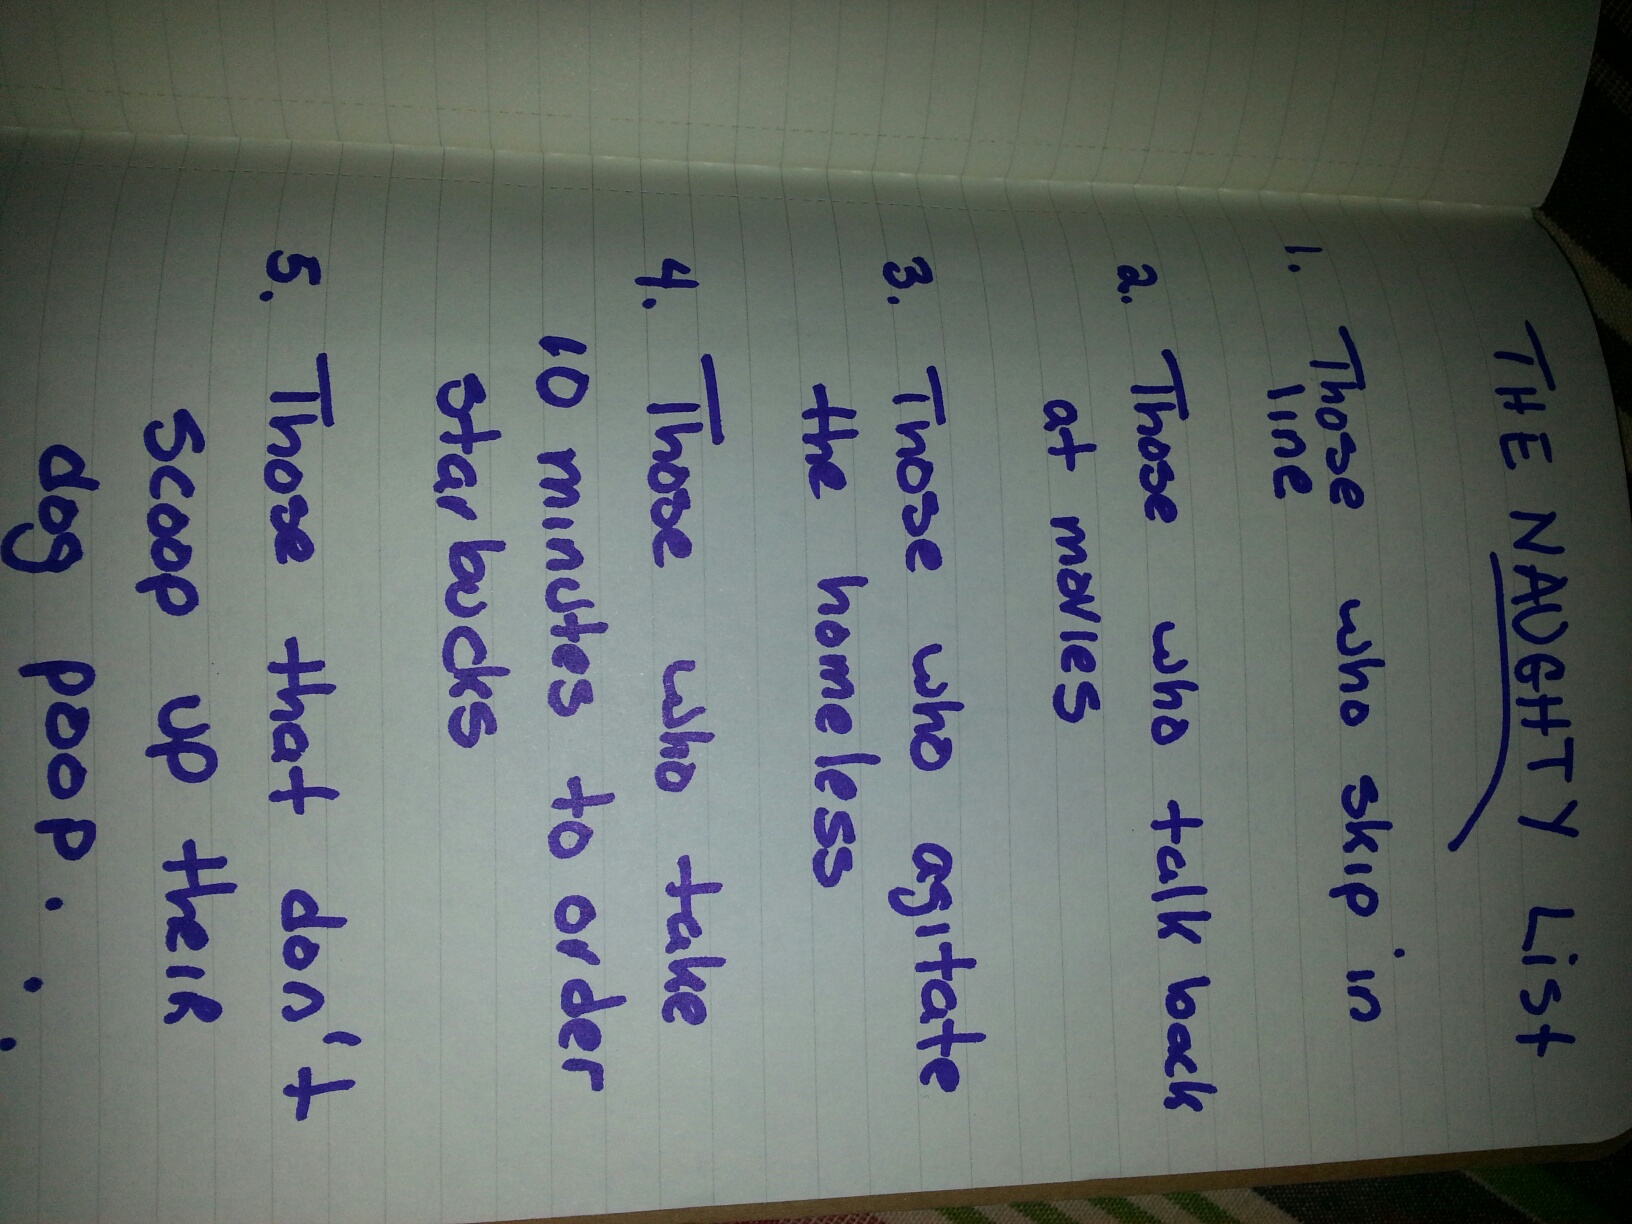 THE NAUGHTY List
1. Those who skip in
line
2. Those who talk back
at movies
3. Those who agitate
the homeless
4. Those who take
10 minutes to order
starbucks
5. Those that don't
scoop up their
dog poop...